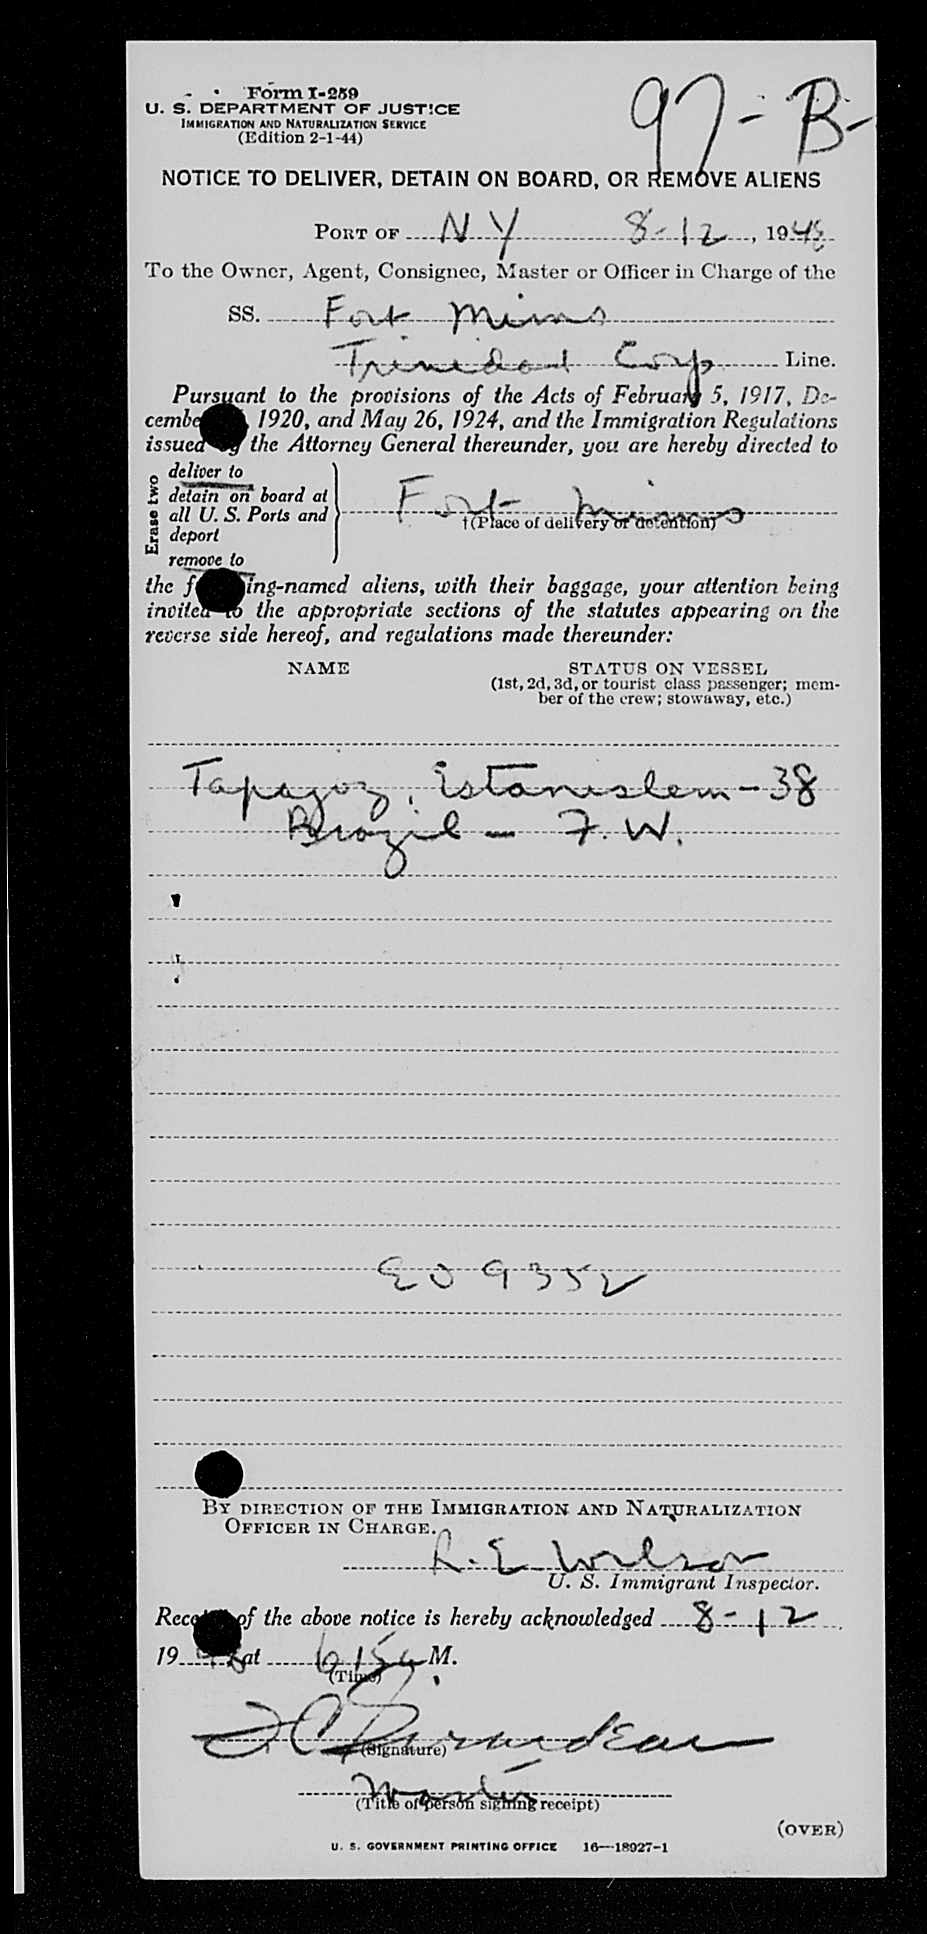 Form I-259
97-B-
U. S. DEPARTMENT OF JUSTICE
IMMIGRATION AND NATURALIZATION SERVICE
(Edition 2-1-44)
NOTICE TO DELIVER, DETAIN ON BOARD, OR REMOVE ALIENS
PORT OF N Y 8-12, 1948
To the Owner, Agent, Consignee, Master or Officer in Charge of the
SS. Fort Mims
Trinidad Corp Line.
Pursuant to the provisions of the Acts of February 5, 1917, De-
cembe 1920, and May 26, 1924, and the Immigration Regulations
issued by the Attorney General thereunder, you are hereby directed to
Erase two
deliver to
detain on board at
all U. S. Ports and
deport
remove to
Fort Mims
†(Place of delivery or detention)
the f ing-named aliens, with their baggage, your attention being
invited to the appropriate sections of the statutes appearing on the
reverse side hereof, and regulations made thereunder:
NAME STATUS ON VESSEL
(1st, 2d, 3d, or tourist class passenger; mem-
ber of the crew; stowaway, etc.)
Tapajoz, Estanislem - 38
Brazil - F. W.
EO 9352
BY DIRECTION OF THE IMMIGRATION AND NATURALIZATION
OFFICER IN CHARGE.
R. E. Wilson
U. S. Immigrant Inspector.
Rece of the above notice is hereby acknowledged 8-12
1948 at 615a M.
(Time)
(Signature)
Master
(Title of person signing receipt)
(OVER)
U. S. GOVERNMENT PRINTING OFFICE 16—18927-1